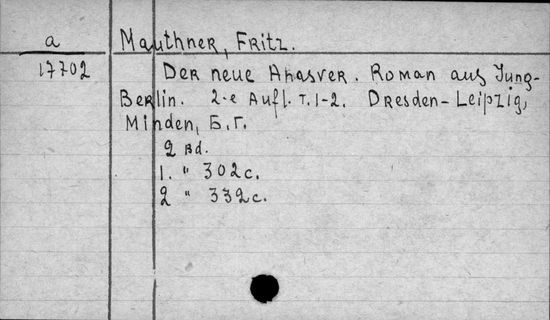 a Mauthner, Fritz.
17702 Der neue Ahasver. Roman aus Jung-
Berlin. 2-e Aufl. т. 1-2. Dresden-Leipzig,
Minden, Б.Г.
2 Bd.
1. " 302 c.
2 " 332 c.